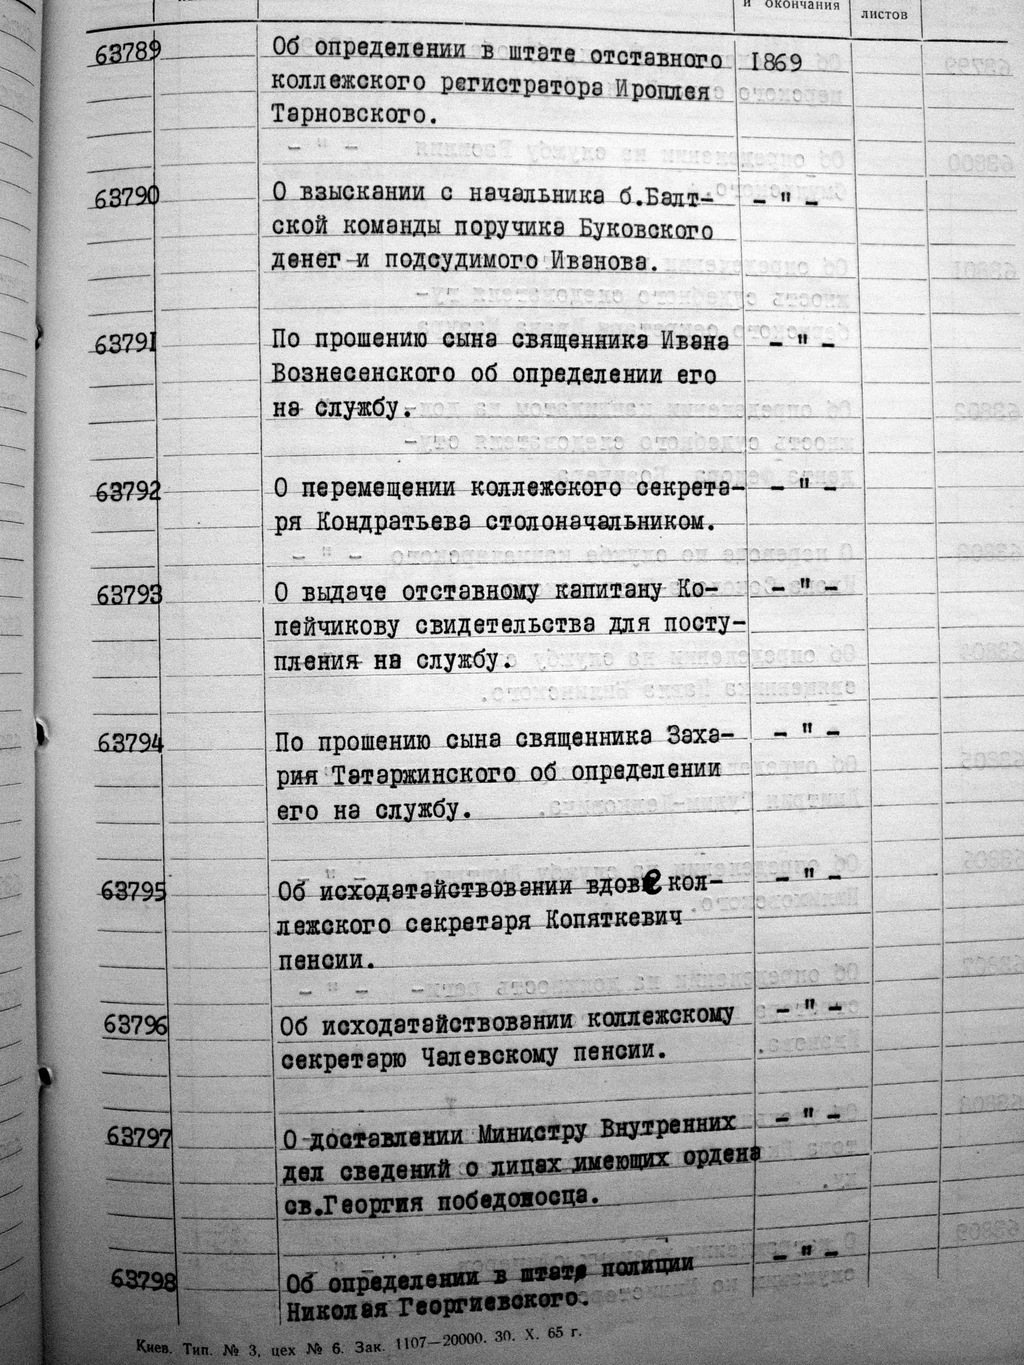 и окончания
листов
63789 Об определении в штате отставного 1869
коллежского регистратора Ироплея
Тарновского.
63790 О взыскании с начальника б.Балт- - " -
ской команды поручика Буковского
денег и подсудимого Иванова.
63791 По прошению сына священника Ивана - " -
Вознесенского об определении его
на службу.
63792 О перемещении коллежского секрета- - " -
ря Кондратьева столоначальником.
63793 О выдаче отставному капитану Ко- - " -
пейчикову свидетельства для посту-
пления на службу.
63794 По прошению сына священника Заха- - " -
рия Татаржинского об определении
его на службу.
63795 Об исходатайствовании вдове кол- - " -
лежского секретаря Копяткевич
пенсии.
63796 Об исходатайствовании коллежскому - " -
секретарю Чалевскому пенсии.
63797 О доставлении Министру Внутренних - " -
дел сведений о лицах имеющих ордена
св.Георгия победоносца.
63798 Об определении в штате полиции - " -
Николая Георгиевского.
Киев. Тип. № 3, цех № 6. Зак. 1107—20000. 30. X. 65 г.